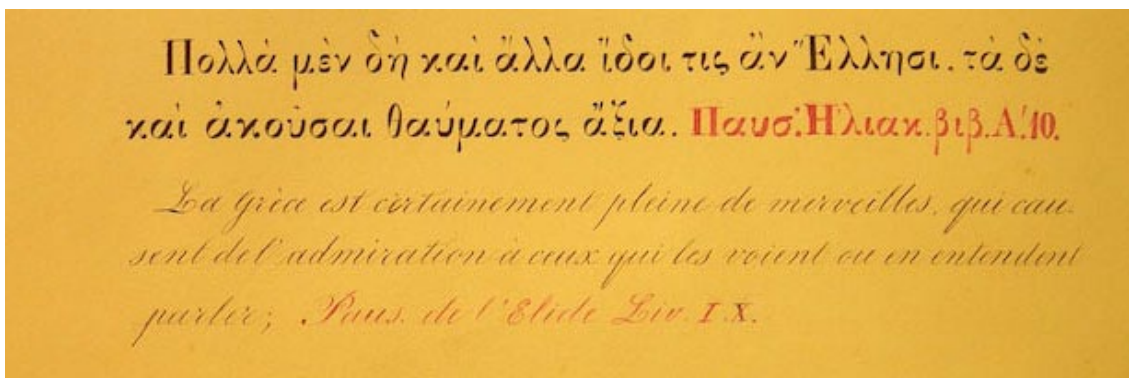 Πολλὰ μὲν δὴ καὶ ἄλλα ἴδοι τις ἂν Ἕλλησι. τὰ δὲ
καὶ ἀκοῦσαι θαύματος ἄξια. Παυσ. Ἠλιακ. βιβ. Α΄. 10.
La Grèce est certainement pleine de merveilles, qui cau-
sent de l'admiration à ceux qui les voient ou en entendent
parler; Paus. de l'Elide Liv. I. X.